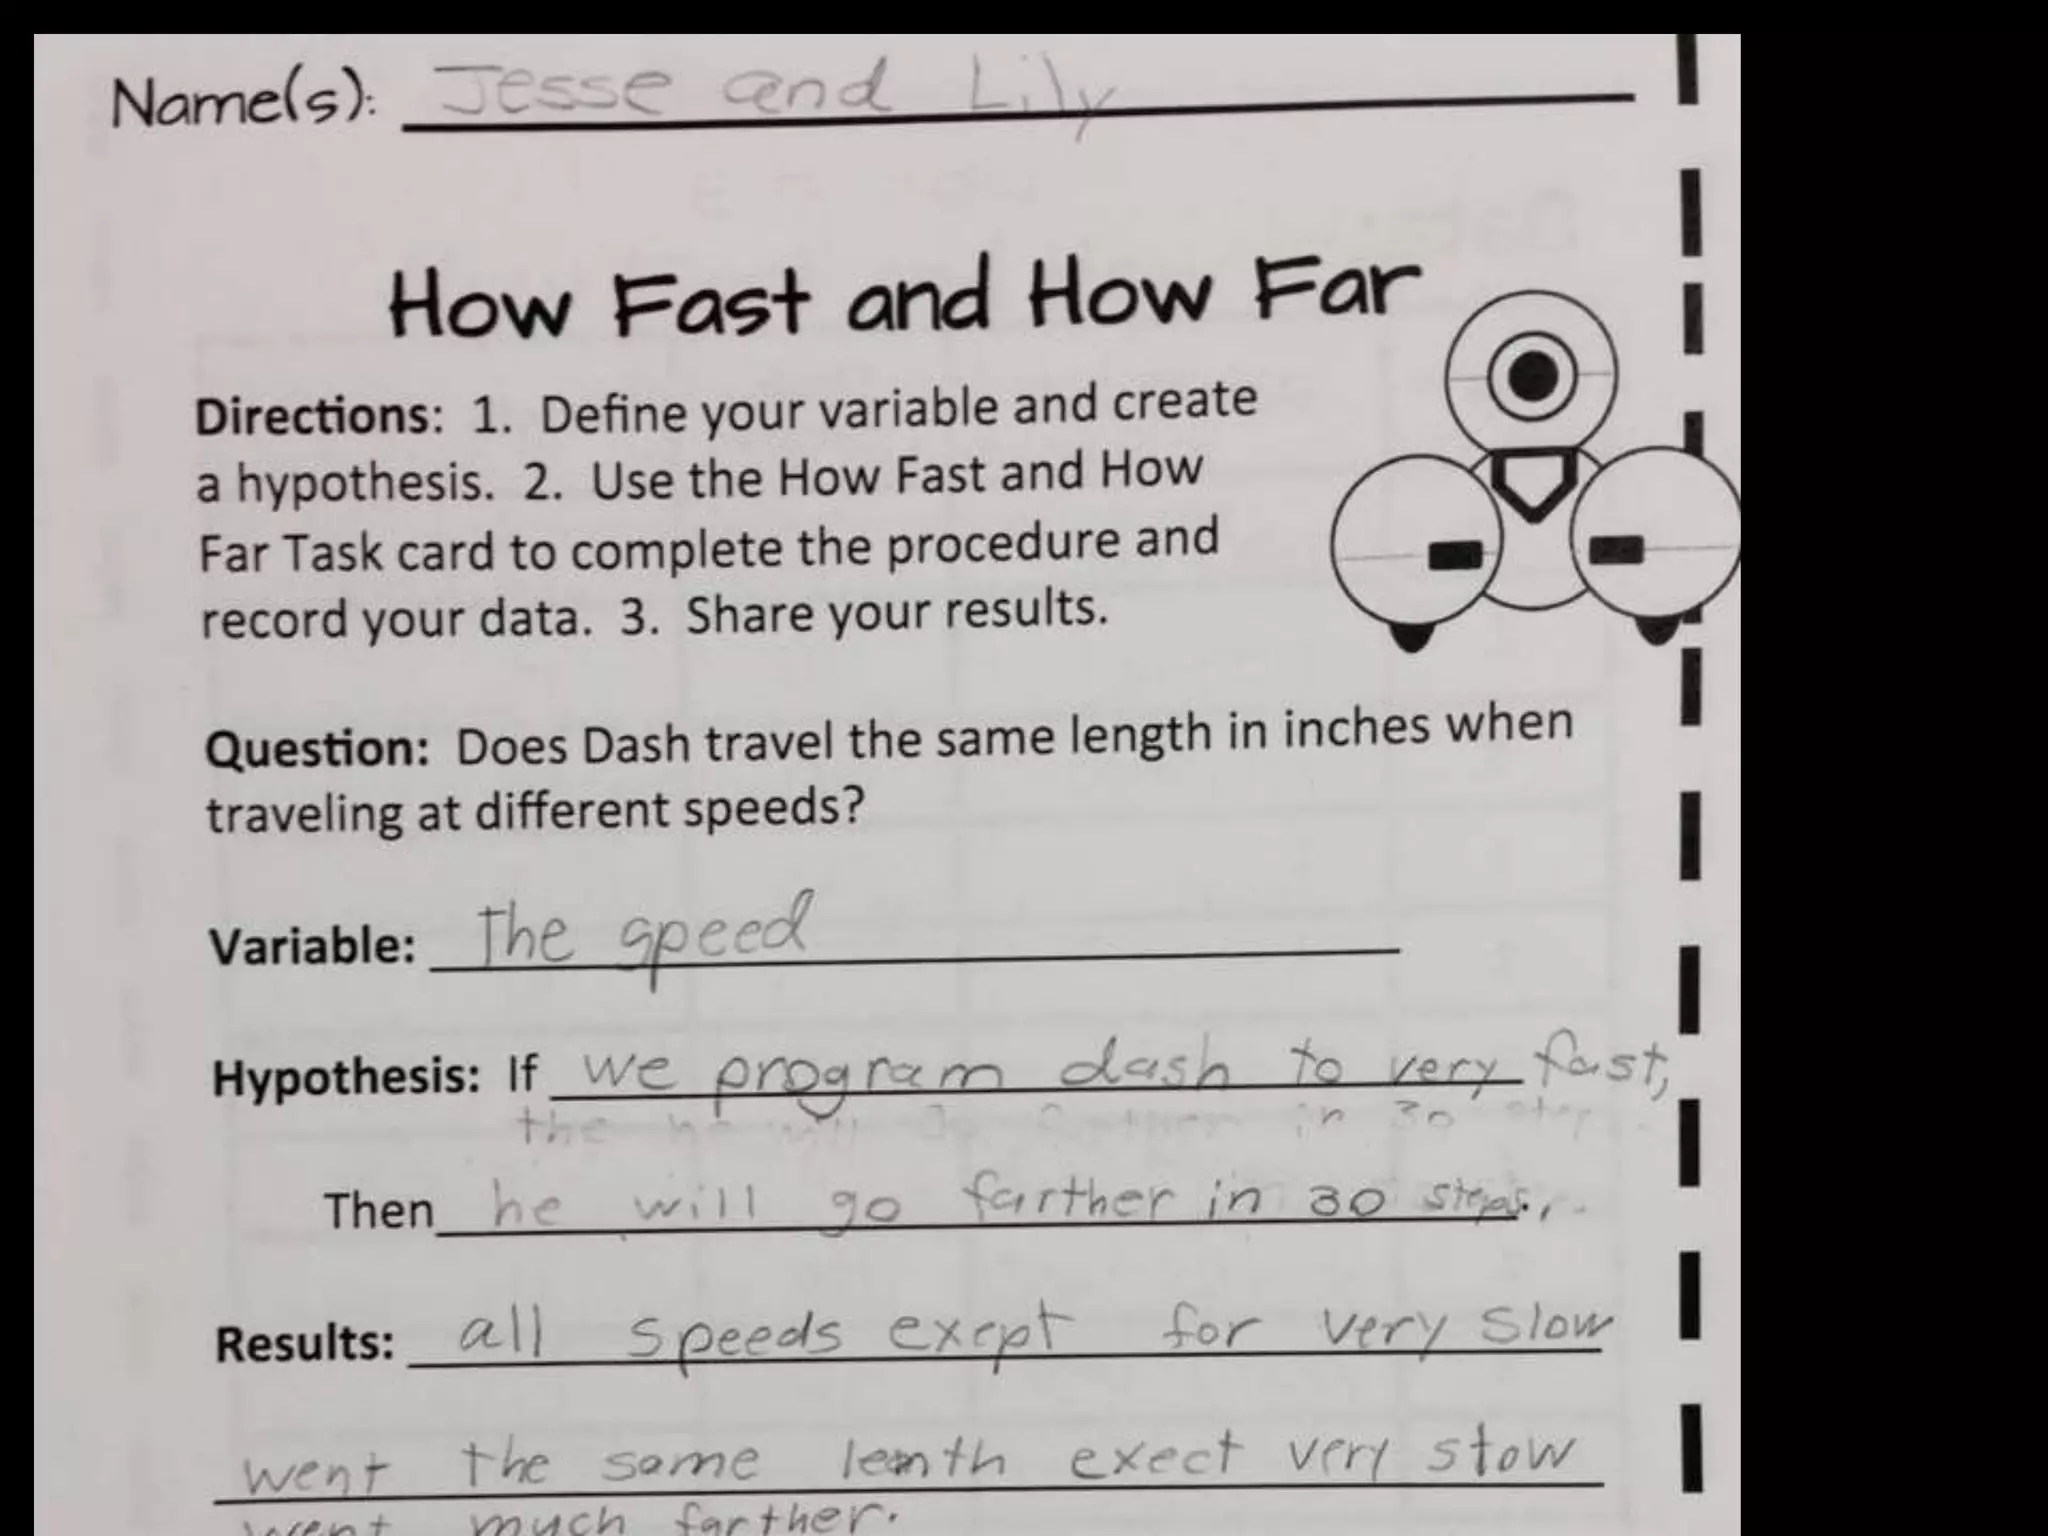 Name(s): Jesse and Lily
How Fast and How Far
Directions: 1. Define your variable and create
a hypothesis. 2. Use the How Fast and How
Far Task card to complete the procedure and
record your data. 3. Share your results.
Question: Does Dash travel the same length in inches when
traveling at different speeds?
Variable: The speed
Hypothesis: If we program dash to very fast,
the he will go farther in 30 step
Then he will go farther in 30 steps.
Results: all speeds exept for very slow
went the same lenth exect very slow
went much farther.